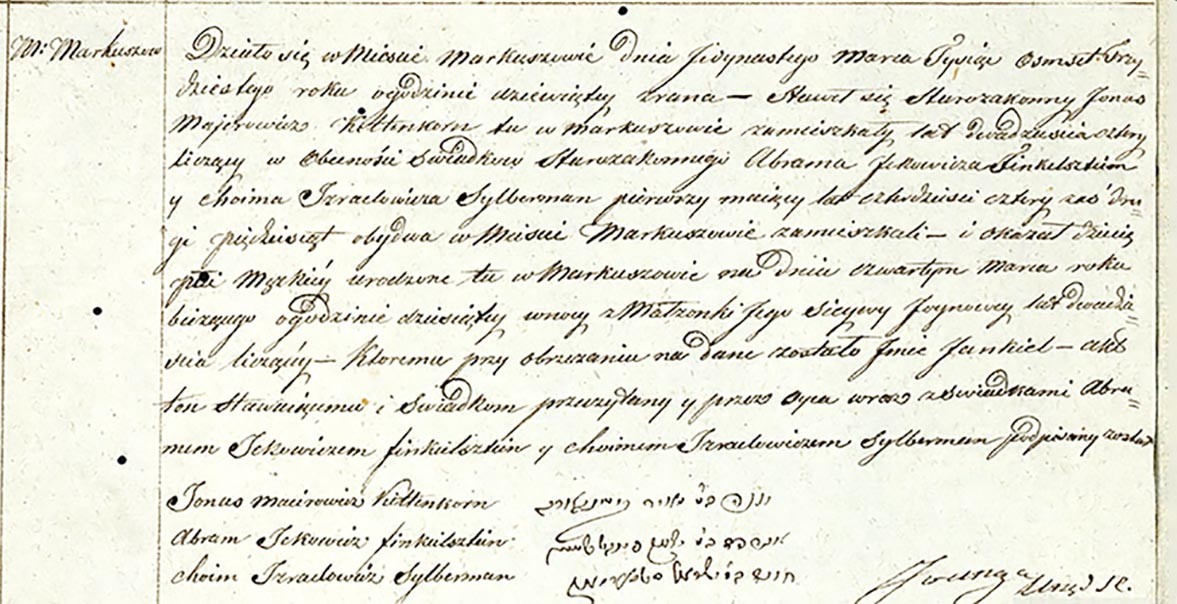 M: Markuszow
Działo się w Miescie Markuszowie dnia Jedynastego Marca Tysiąc Osmset Trzy=
dziestego roku o godzinie dziewiątey zrana — Stawił się Starozakonny Jonas
Majerowicz Kettenkorn tu w Markuszowie zamieszkały lat dwadziescia cztery
liczący w Obecności Swiadkow Starozakonnego Abrama Jckowicza Finkelsztein
y Choima Izraelowicza Sylberman pierwszy maiący lat czterdziesci cztery zas dru=
gi pięćdziesiąt obydwa w Mieście Markuszowie zamieszkali — i okazał dziecię
płci Męzkiéy urodzone tu w Markuszowie na dniu czwartym Marca roku
bieżącego o godzinie dziesiątey w nocy z Małzonki Jego lat dwadzie=
scia liczącéy — Któremu przy obrzezaniu nadane zostało Jmie Jankiel — akt
ten Stawaiącemu i Swiadkom przeczytany y przez Oyca wraz z Swiadkami Abra=
mem Ickowiczem finkielsztein y Choimem Izraelowiczem Sylbermem podpisany został
Jonas Maierowicz Kettenkorn יונה בר מאיר
Abram Ickowicz finkielsztein אברהם בר יצחק פינקלשטיין
Choim Izraelowicz Sylberman חיים בר ישראל סילבערמאן